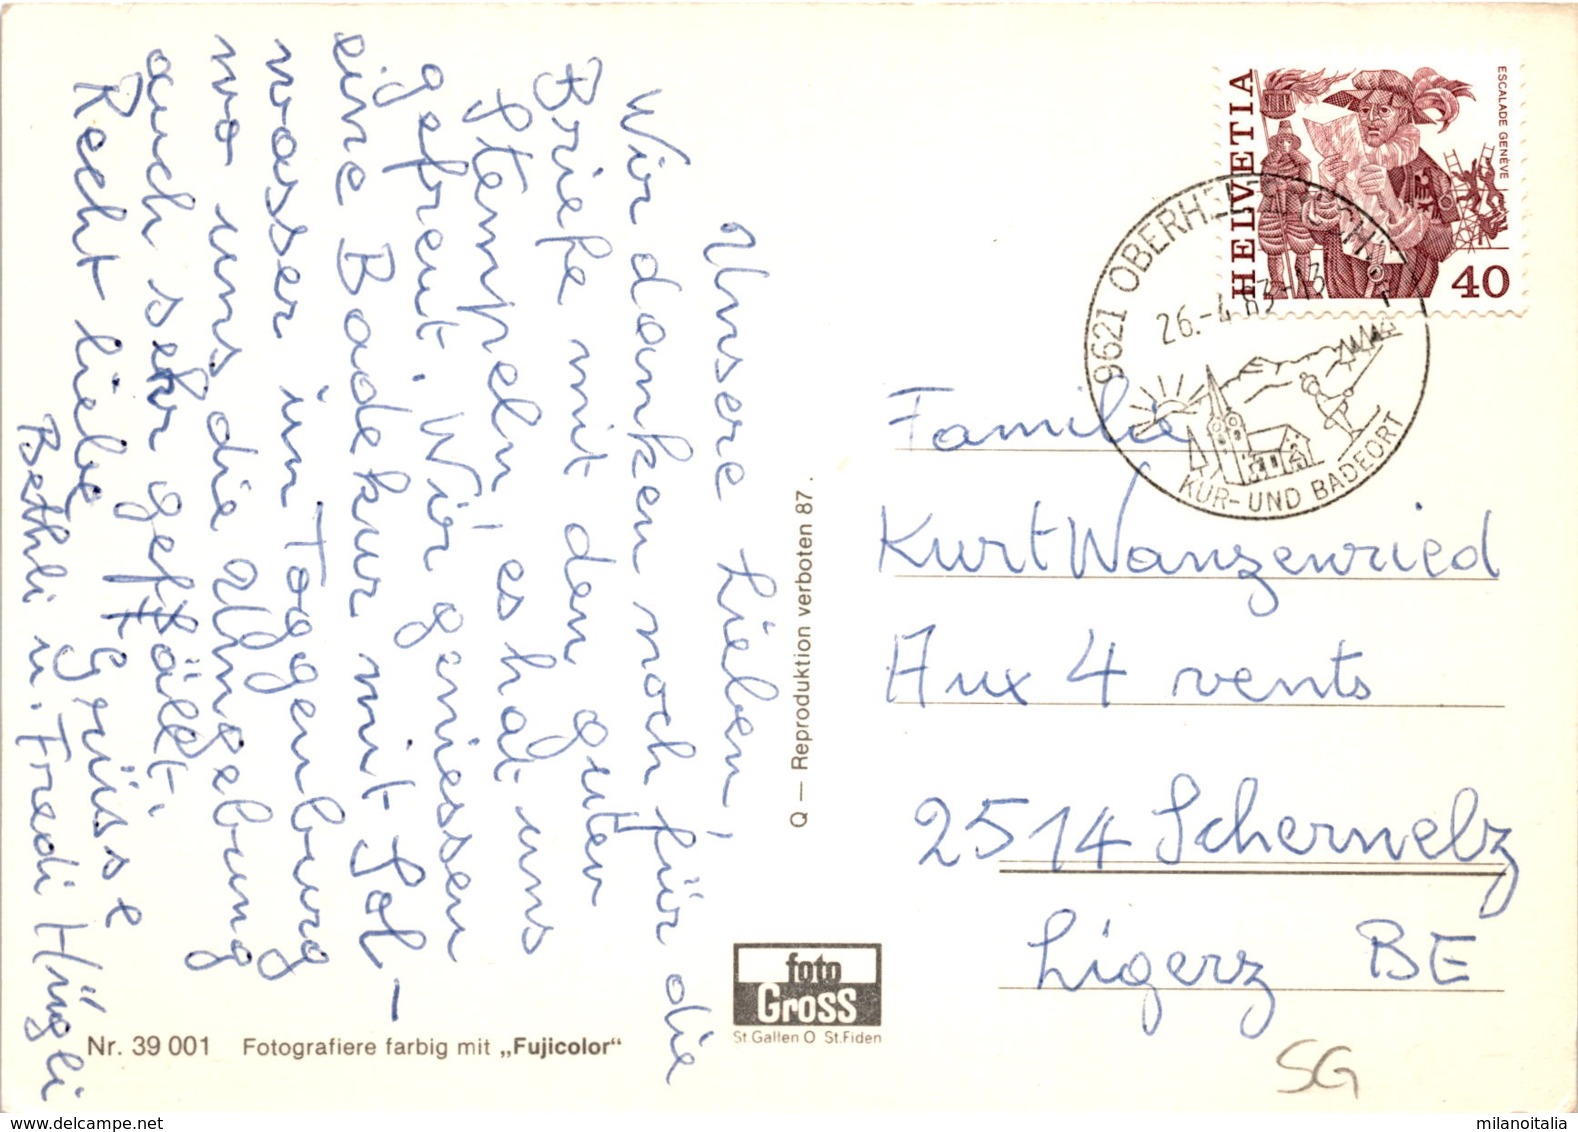 Unsere Lieben,
Wir danken noch für die
Briefe mit den guten
Stempeln, es hat uns
gefreut. Wir geniessen
eine Badekur mit Sol-
wasser im Toggenburg
wo uns die Umgebung
auch sehr gefällt.
Recht liebe Grüsse
Bethli u. Fredi Hügli
Q — Reproduktion verboten 87.
Nr. 39 001 Fotografiere farbig mit „Fujicolor"
foto
Gross
St.Gallen O St.Fiden
HELVETIA
ESCALADE GENÈVE
40
9621 OBERHELFENSCHWIL
26.-4.83-13
KUR- UND BADEORT
Familie
Kurt Wanzenried
Aux 4 vents
2514 Schernelz
Ligerz BE
SG
milanoitalia